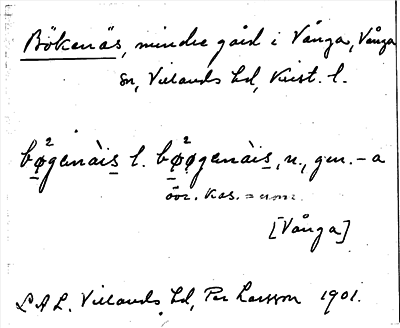 Bökenäs, mindre gård i Vånga, Vånga
sn, Villands hd, Krist. l.
bø²genàis l. bø²øgenàis, n., gen. -a
övr. kas. = nom.
[Vånga]
LAL. Villands hd, Per Larsson 1901.